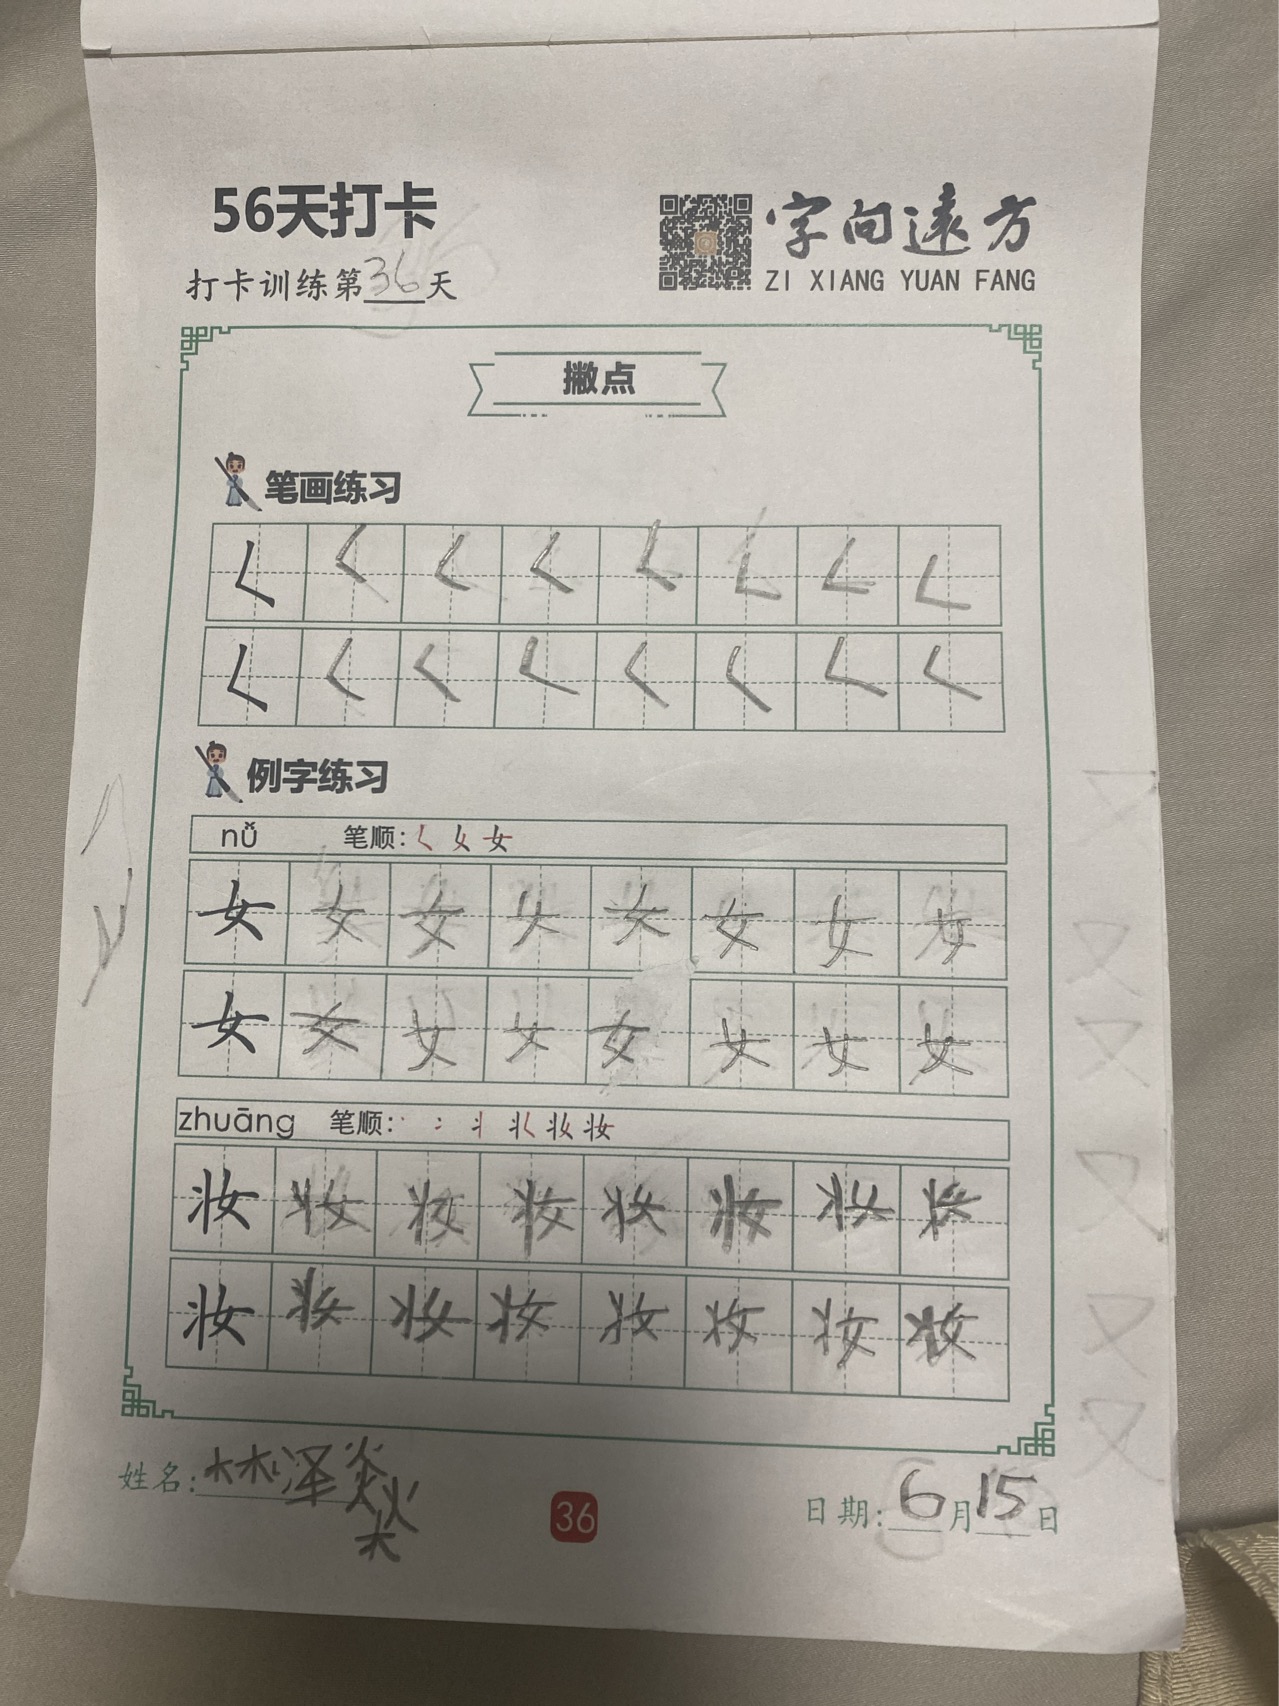 56天打卡
字向遠方
打卡训练第36天
ZI XIANG YUAN FANG
撇点
笔画练习
𡿨 𡿨 𡿨 𡿨 𡿨 𡿨 𡿨 𡿨
𡿨 𡿨 𡿨 𡿨 𡿨 𡿨 𡿨 𡿨
例字练习
nǚ 笔顺: 女
女 女 女 女 女 女 女 女
女 女 女 女 女 女 女 女
zhuāng 笔顺: 妆
妆 妆 妆 妆 妆 妆 妆 妆
妆 妆 妆 妆 妆 妆 妆 妆
姓名: 林泽
36
日期: 6月15日